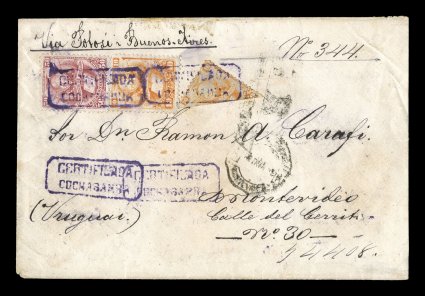 Via Potosí - Buenos-Aires.
No 344.
CERTIFICADA
COCHABAMBA
CERTIFICADA
COCHABAMBA
Sor Dn. Ramon A. Carafi.
CERTIFICADA
COCHABAMBA
CERTIFICADA
COCHABAMBA
Montevideo
(Uruguai)
Calle del Cerrito
— No 30 —
94408.